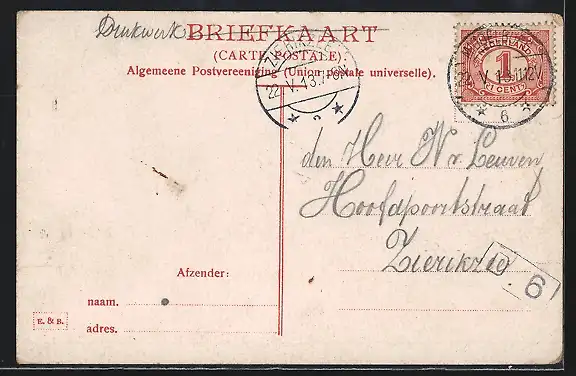 Drukwerk
BRIEFKAART
(CARTE POSTALE)
Algemeene Postvereeniging (Union postale universelle).
ZIERIKZEE
22 V 13
NEDERLAND
1
1 CENT
22 V 13 11-12V
6
den Heer W v. Leuven
Hoofdpoortstraat
Zierikzee
6
Afzender:
naam.
adres.
E. & B.